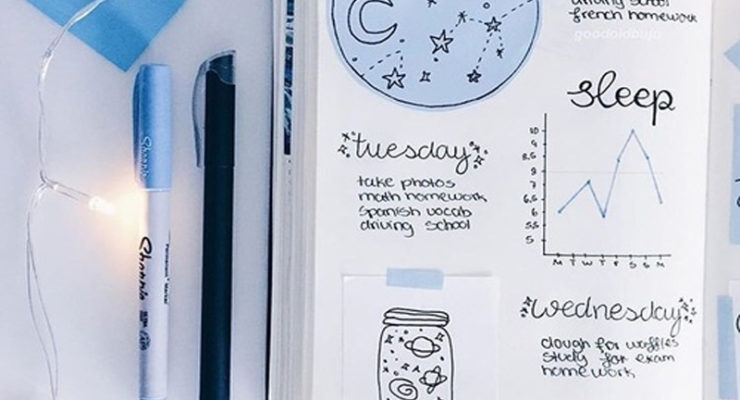 driving school
french homework
goodoldbujo
sleep
10
9
8,5
8
7
6,5
6
5,5
5
M T W T F S S M
tuesday
take photos
math homework
spanish vocab
driving school
wednesday
dough for waffles
study for exam
homework
Sharpie
Sharpie
Permanent Marker